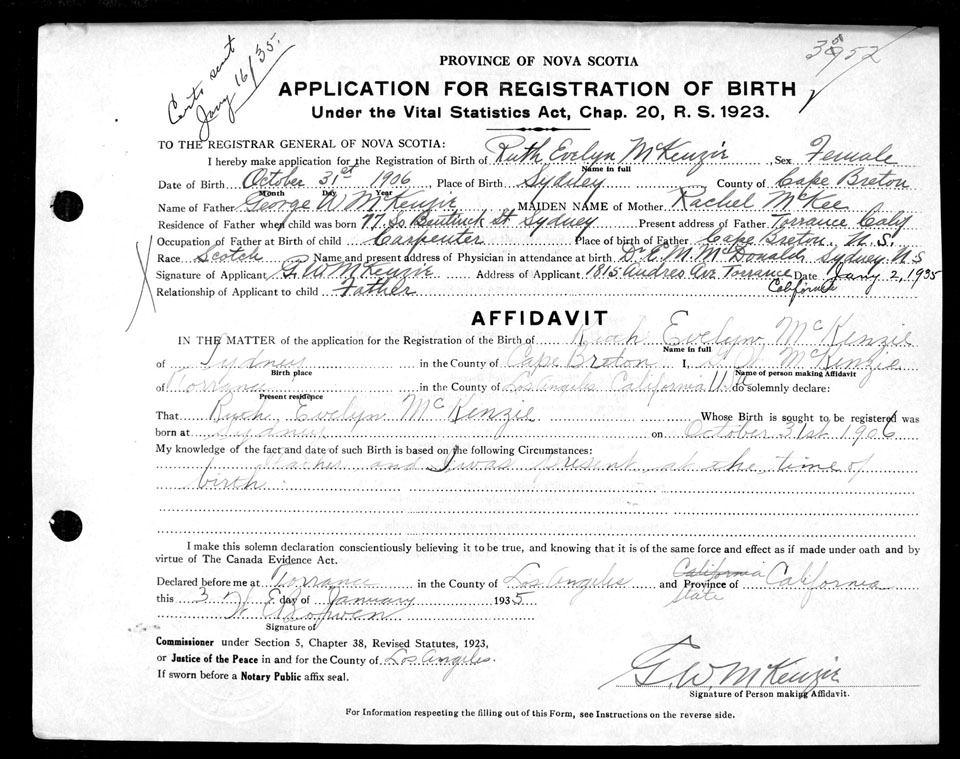 Certs sent
Jany 16/35.
PROVINCE OF NOVA SCOTIA
APPLICATION FOR REGISTRATION OF BIRTH
Under the Vital Statistics Act, Chap. 20, R. S. 1923.
TO THE REGISTRAR GENERAL OF NOVA SCOTIA:
I hereby make application for the Registration of Birth of Ruth Evelyn McKenzie, Sex Female
Name in full
Date of Birth October 31st 1906, Place of Birth Sydney County of Cape Breton
Month Day Year
Name of Father George W McKenzie MAIDEN NAME of Mother Rachel McKee
Residence of Father when child was born 77 So Bentinck St Sydney Present address of Father Torrance Calif
Occupation of Father at Birth of child Carpenter Place of birth of Father Cape Breton, N.S.
Race Scotch Name and present address of Physician in attendance at birth Dr. McDonald, Sydney N.S
Signature of Applicant G.W McKenzie Address of Applicant 1815 Andreo Ave Torrance Date Jany 2, 1935
California
Relationship of Applicant to child Father
AFFIDAVIT
IN THE MATTER of the application for the Registration of the Birth of Ruth Evelyn McKenzie
Name in full
of Sydney in the County of Cape Breton I, G W McKenzie
Birth place Name of person making Affidavit
of Torrance in the County of Los Angeles California do solemnly declare:
Present residence
That Ruth Evelyn McKenzie Whose Birth is sought to be registered was
born at Sydney on October 31st 1906
My knowledge of the fact and date of such Birth is based on the following Circumstances:
Father and I was present at the time of
birth.
I make this solemn declaration conscientiously believing it to be true, and knowing that it is of the same force and effect as if made under oath and by
virtue of The Canada Evidence Act.
Declared before me at Torrance in the County of Los Angeles and Province of California
California
State
this 3 day of January 1935
Bowen
Signature of
Commissioner under Section 5, Chapter 38, Revised Statutes, 1923,
or Justice of the Peace in and for the County of Los Angeles.
If sworn before a Notary Public affix seal.
G. W. McKenzie
Signature of Person making Affidavit.
For Information respecting the filling out of this Form, see Instructions on the reverse side.